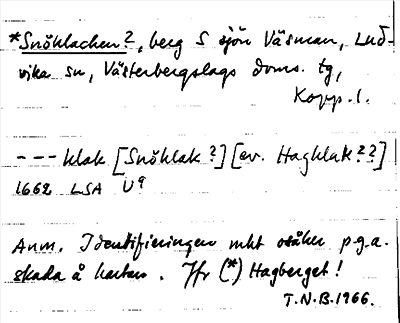 *Snöklacken?, berg S sjön Väsman, Lud-
vika sn, Västerbergslags doms. tg,
Kopp. l.
--- klak [Snöklak?] [ev. Hagklak??]
1662 LSA U9
Anm. Identifieringen mkt osäker p.g.a.
skada å kartan. Jfr (*) Hagberget!
T.N.B. 1966.